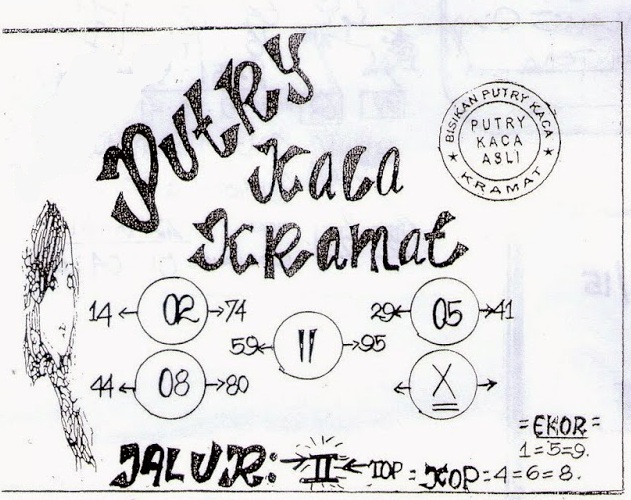 PUTRY
Kaca
Kramat
BISIKAN PUTRY KACA
PUTRY
KACA
ASLI
★ KRAMAT ★
14 ← 02 → 74
29 ← 05 → 41
59 ← 11 → 95
44 ← 08 → 80
← X →
= EKOR =
1=5=9.
JALUR: → II ← TOP = KOP = 4=6=8.